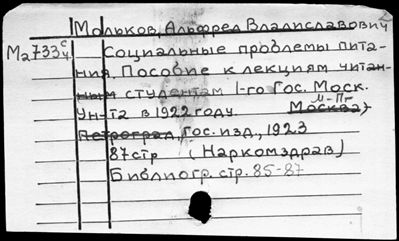 Мольков, Альфред Владиславович
Ма733 с/4 Социальные проблемы пита-
ния. Пособие к лекциям читан-
ным студентам 1-го Гос. Моск.
Ун-та в 1922 году. М-Пг
Москва,
Петроград, Гос. изд., 1923
87 стр (Наркомздрав)
Библиогр. стр. 85-87